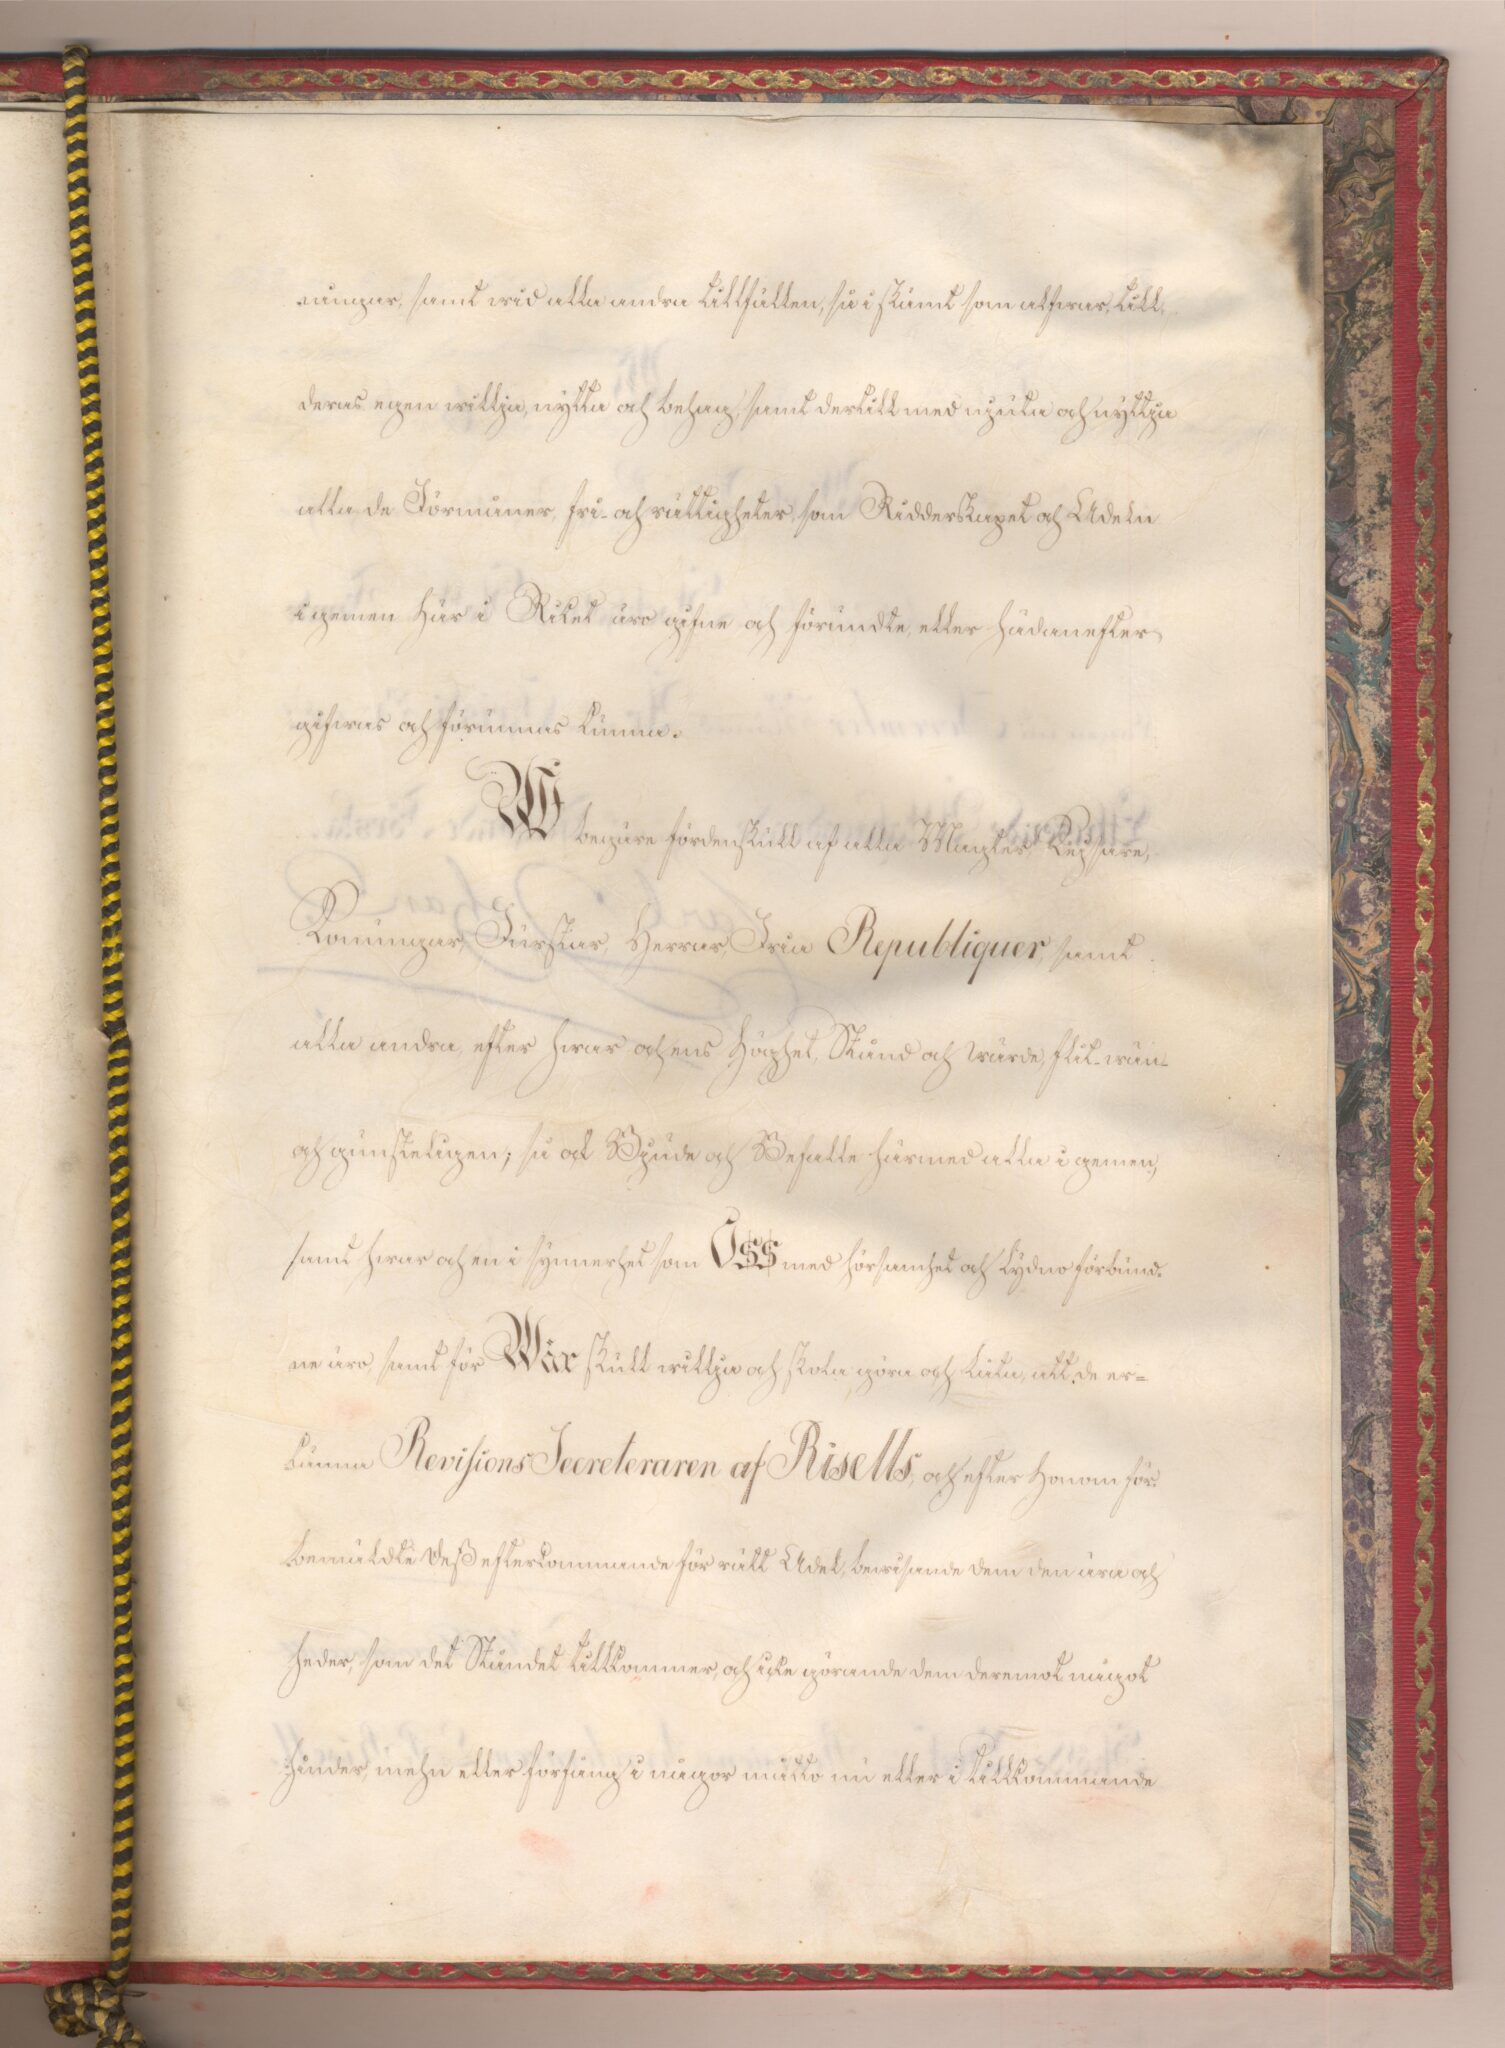 ningar, samt wid alla andra tillfällen, så i skämt som alfwar, till
deras egen willja, nytta och behag, samt dertill med njuta och nyttja
alla de Förmåner, fri- och rättigheter, som Ridderskapet och Adeln
i gemen här i Riket äro gifne och förundte, eller hädanefter
gifwas och förunnas kunna.
Wi begäre fördenskull af alla Magter, Kejsare,
Konungar, Furstar, Herrar, Fria Republiquer, samt
alla andra, efter hwar och ens Höghet, Stånd och wärde, flit- wän-
och gunsteligen; så ock Bjude och Befalle härmed alla i gemen,
samt hwar och en i synnerhet som Oss med hörsamhet och lydno förbund-
ne äro, samt för Wår skull willja och skola göra och låta, att de er-
känna Revisions Secreteraren af Risells, och efter Honom för-
bemäldte dess efterkommande för rätt Adel, bewisande dem den ära och
heder, som det Ståndet tillkommer, och icke görande dem deremot något
hinder, mehn eller förfång i någor måtto nu eller i tillkommande